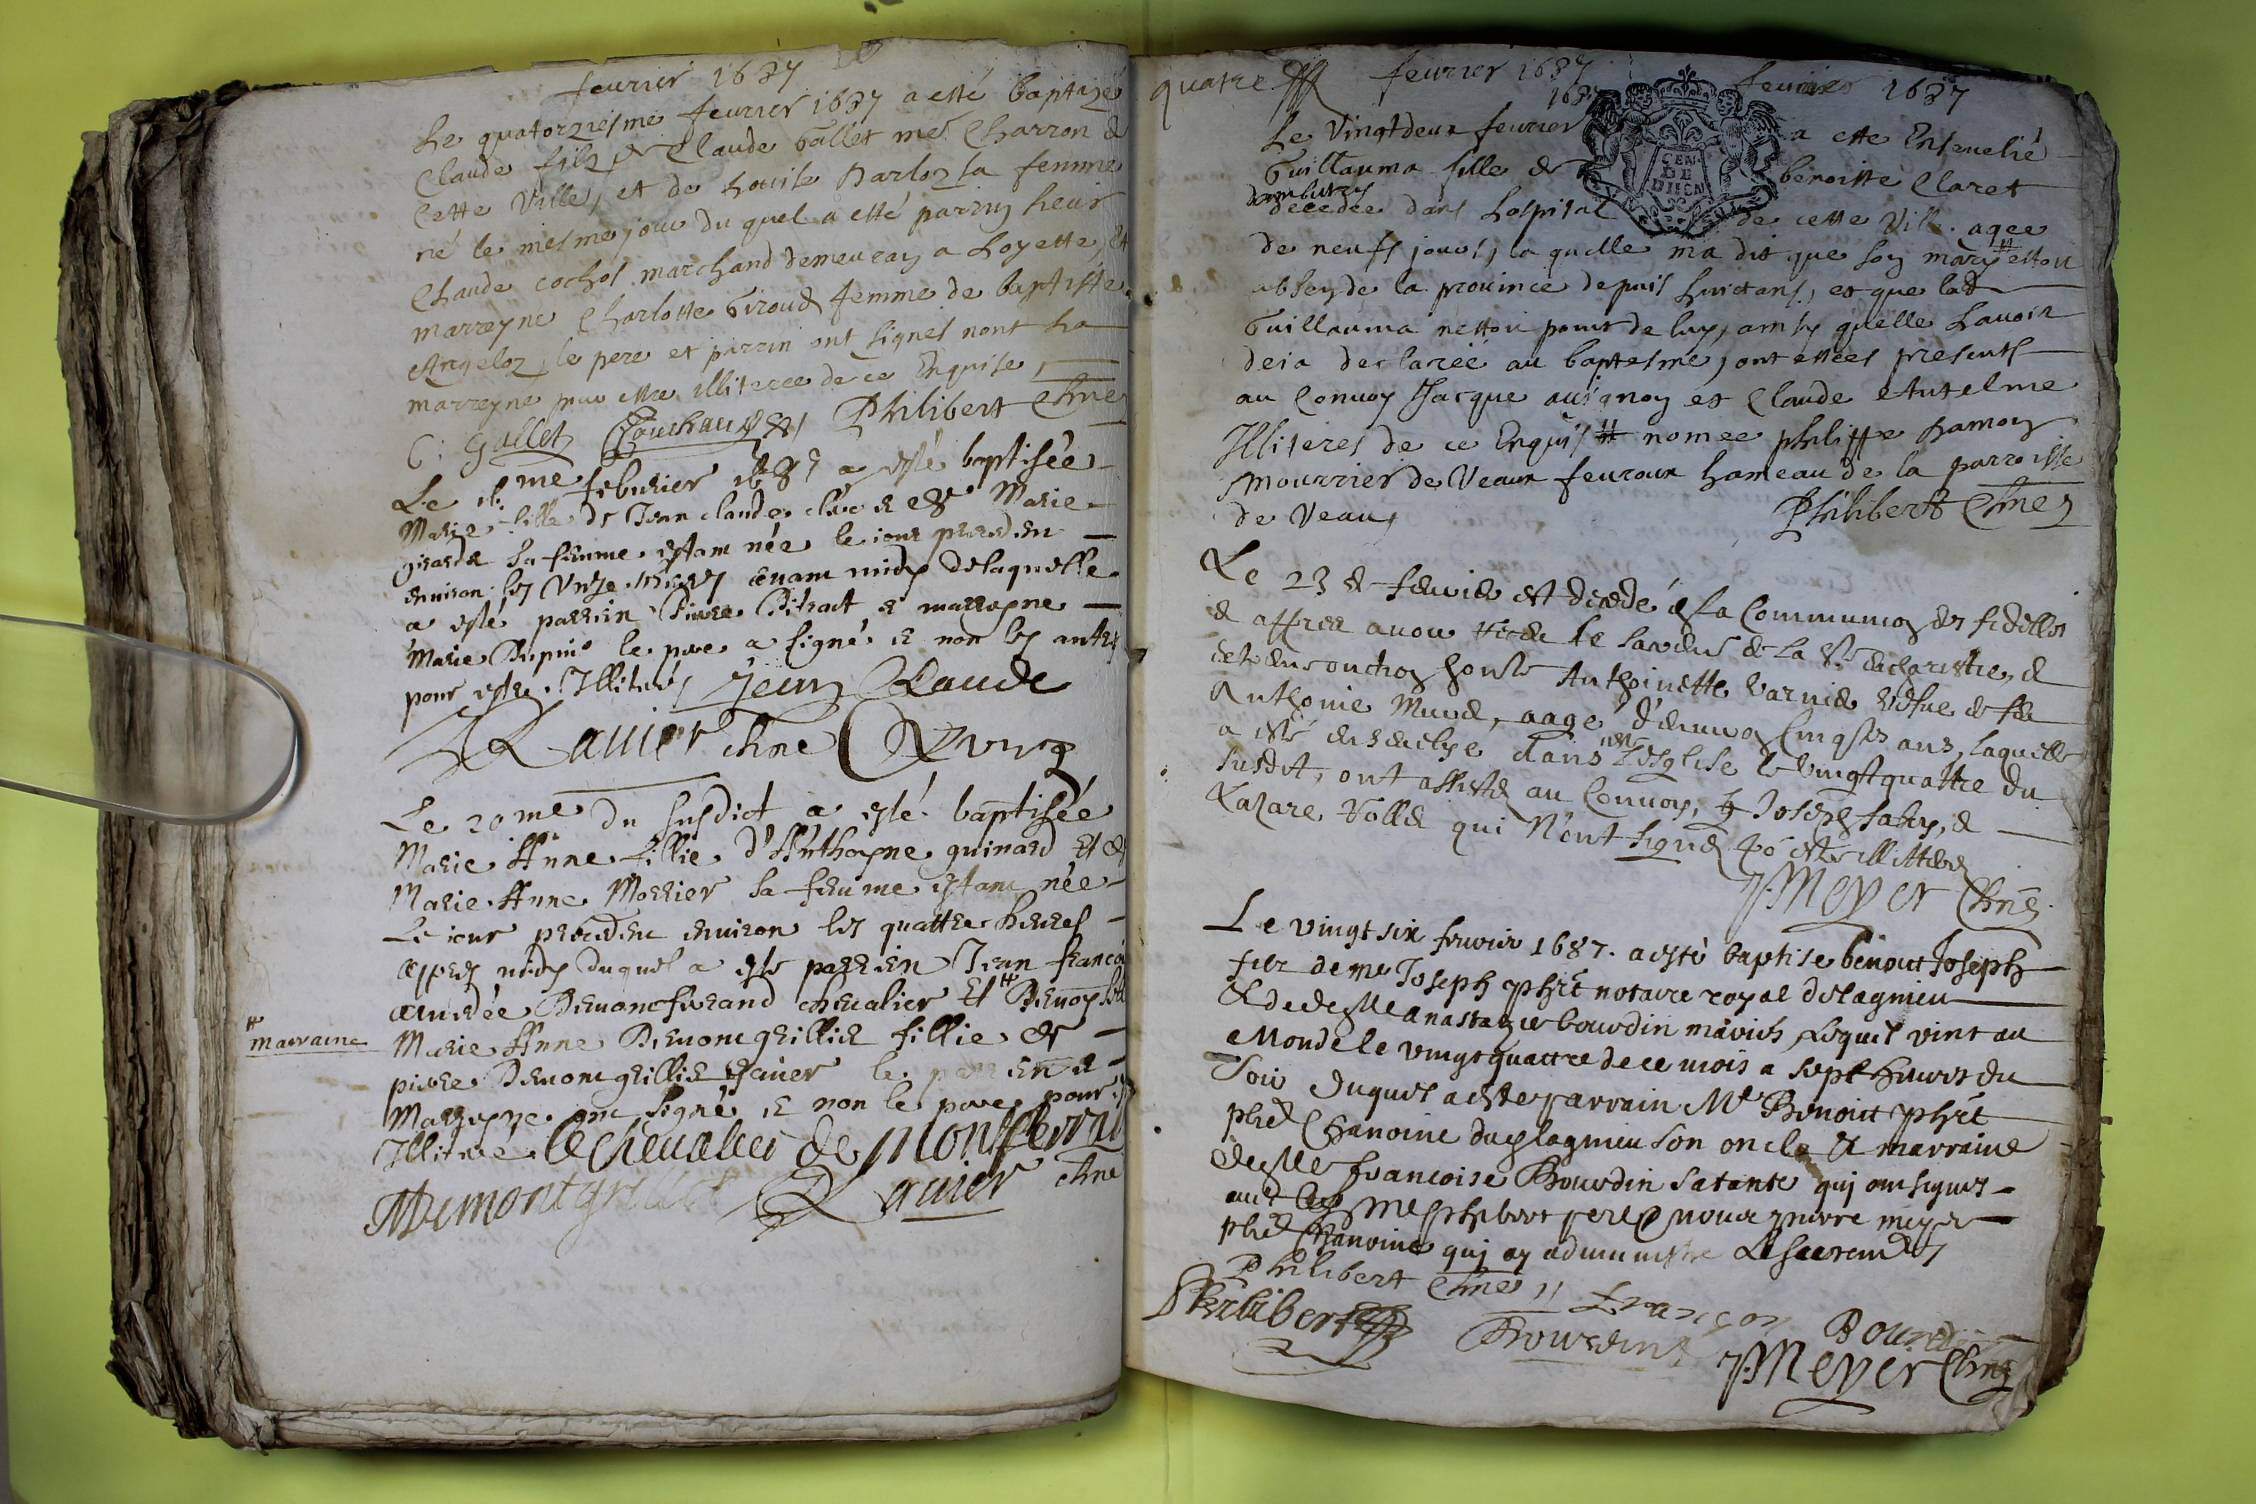 feurier 1687
Le quatorziesme feurier 1687 a esté baptizé
Claude filz de Claude Gallet me. Charron de
Cette Ville, et de Louise Darloz sa femme
né le mesme jour du quel a esté parrin sieur
Claude cochol marchand demeuran a Loyette, et
marreyne Charlotte Giroud femme de baptiste
Angeloz, le pere et parrin ont signes nont la
marreyne pour estre illiteree de ce Enquise,
C. Gallet Philibert Chne
Le me feburier 1687 a esté baptisée
Marie fille de Jean claude et Marie
girarde sa femme estant née le iour preceden
enuiron les Unze heures auant midy delaquelle
a esté parrin Piere Pitrat et marrayne
Marie Dupuis le pere a signé et non les autres
pour estre Illiteres Jean Claude
Rauier chne
Le 20me du susdict a esté baptisée
Marie Anne fillie d'Anthoyne guinard Et de
Marie Anne Morrier sa femme estant née
Le iour precedent enuiron les quattre heures
apres midy duquel a esté parrien Jean françois
amedée Demontferrand cheualier Et #
# marraine
Marie Anne Demontgrillie fillie de
pierre Demontgrillie le parrien et
Marrayne ont signé et non le pere pour
Illiteré le cheualier de montferrand
MDemontgrillie Rauier chne
quatre feurier 1687 feurier 1687
1687
Le Vingtdeux feurier a este Enseuelié
Guillauma fille de benoitte Claret
decedée dans Lospital de cette Ville agee
de neufs jours, la quelle ma dit que son mary # estoit
absen de la prouince depuis huictans, et que lad
Guillauma nestoit point de luy, ainsy quelle Lauoit
deia declareé au baptesme, ont estees presents
au Conuoy Jacque auignon et Claude Antelme
Illiteres de ce Enquis # nomee philippe hamon
mourrier de Veaux feuroux hameau de la parroisse
de Veaux Philibert Chne
Le 23 de feurier est decedé en la Communion des fidelles
et apres auoir receu le sacrement de la Ste eucharistie, et
extreme onction honste Anthoinette Varnie vefue de feu
Anthoine Muuet, aagé d'enuiron Cinqte ans, laquelle
a esté enseuelye dans nre Lesglise le Vingtquattre du
susdit, ont assisté au Conuoy, Joseph fabry, et
Lazare Vollet qui N'ont signé po' estre illitteres
J. Meyer Chne
Le vingt six feurier 1687. a esté baptise benoict Joseph
filz de me Joseph phirt notaire royal de lagnieu
& de delle anastazie bourdin mariés Lequel vint au
Monde le vingtquattre de ce mois a sept heures du
Soir duquel a este parrain Mre Benoict phirt
pbre Chanoine du lagnieu son oncle & marraine
delle francoise Bourdin sa tante quj ont signes
auec me phibert pere & nous pierre meyer
pbre Chanoine quj ay administre Le sacremt
Philibert Chne francon Bourdin
Philibert Bourdin J. Meyer Chne